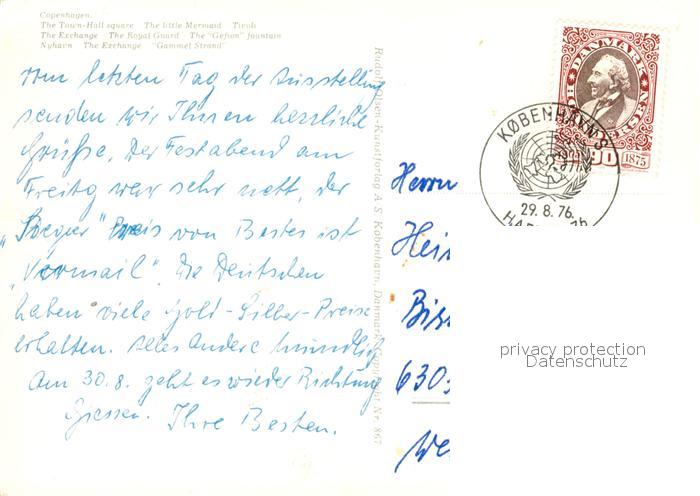 Copenhagen.
The Town-Hall square The little Mermaid Tivoli
The Exchange The Royal Guard - The "Gefion" fountain
Nyhavn The Exchange "Gammel Strand"
vom letzten Tag der Ausstellung
senden wir Ihnen herzliche
Grüße. Der Festabend am
Freitag war sehr nett, der
Preis von Bestes ist
"Vormail". Die Deutschen
haben viele Gold-Silber-Preise
erhalten. Alles andere mündlich
Am 30.8. geht es wieder Richtung
Giessen. Ihre Besten.
Rudolf Olsens Kunstforlag A.S. København, Danmark. Copyright Nr. 867
DANMARK
H.C. ANDERSEN
90
1875
KØBENHAVN
29.8.76.
Herrn
Hein
630
We
privacy protection
Datenschutz